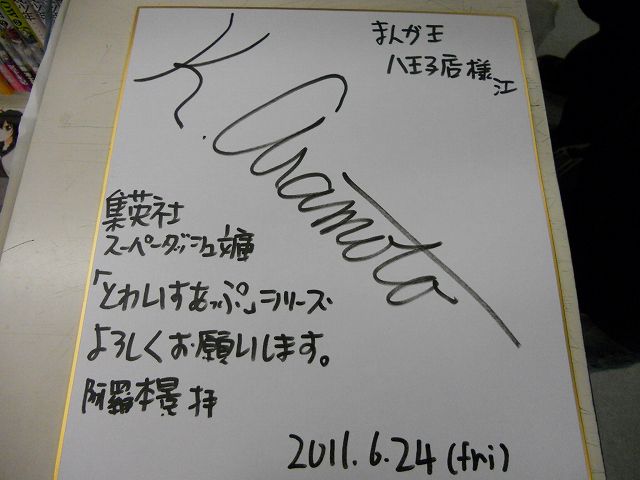 まんが王
八王子店様
江
K. Aramoto
集英社
スーパーダッシュ文庫
「とわいすあっぷ」シリーズ
よろしくお願いします。
阿羅本景 拝
2011.6.24(fri)